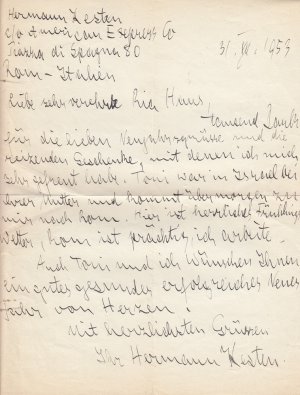 Hermann Kesten
c/o American Express Co
Piazza di Spagna 80
Rom - Italien
31. XII. 1953
Liebe sehr verehrte Ria Hans,
tausend Dank
für die lieben Neujahrsgrüsse und die
reizenden Geschenke, mit denen ich mich
sehr gefreut habe. Toni war in Israel bei
ihrer Mutter und kommt übermorgen zu
mir nach Rom. Hier ist herrliches Frühlings
wetter, Rom ist prächtig, ich arbeite.
Auch Toni und ich wünschen Ihnen
ein gutes gesundes erfolgreiches Neues
Jahr von Herzen.
Mit herzlichsten Grüssen
Ihr Hermann Kesten